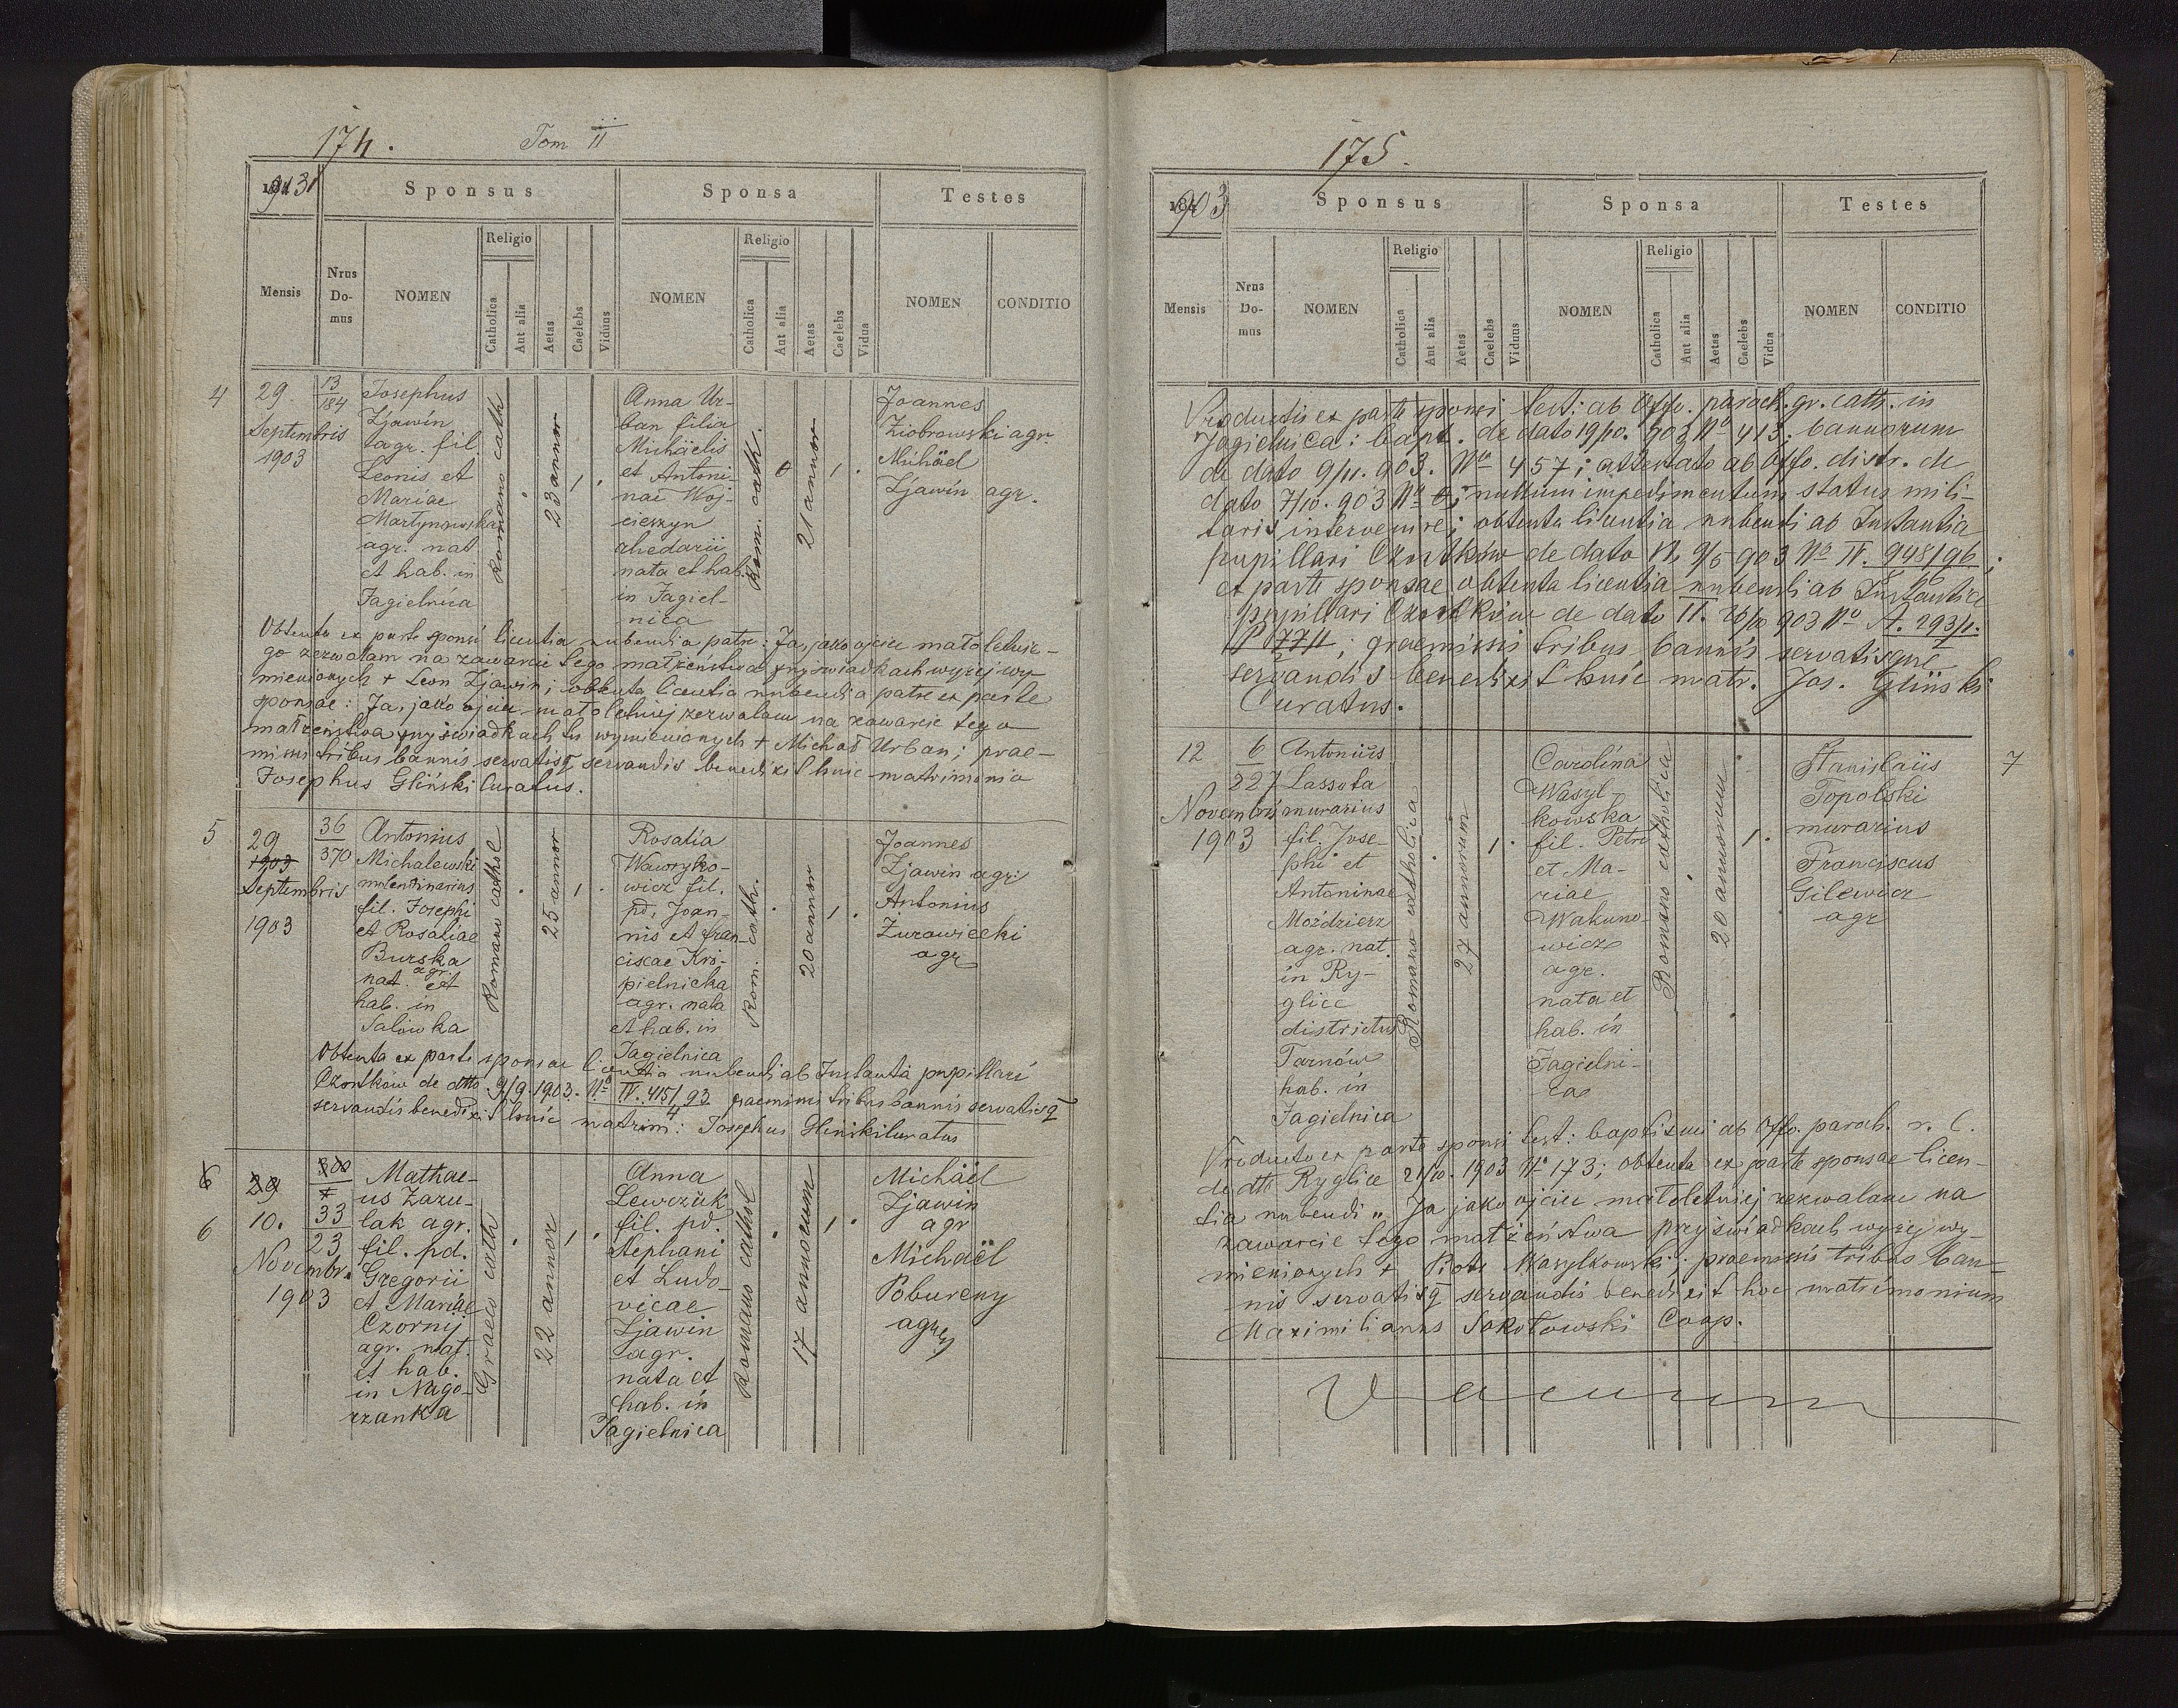 174.
Tom II
1903
Sponsus
Sponsa
Testes
Mensis
Nrus Do-mus
NOMEN
Religio
Catholica
Aut alia
Aetas
Caelebs
Viduus
NOMEN
Religio
Catholica
Aut alia
Aetas
Caelebs
Vidua
NOMEN
CONDITIO
4
29
Septembris
1903
13
184
Josephus
Zjawin
agr. fil.
Leonis et
Mariae
Martynowska
agr. nat
et hab. in
Jagielnica
Romano cath
23 annor
1
Anna Ur-
ban filia
Michäelis
et Antoni-
nae Woj-
cieszyn
rhedarii
nata et hab.
in Jagiel-
nica
Rom. cath.
21 annor
1.
Joannes
Ziobrowski agr.
Michäel
Zjawin agr.
Obtenta ex parte sponsi licentia nubendi a patre: Ja, jako ojciec małoletnie-
go zezwalam na zawarcie tego małżeństwa przy świadkach wyżej wy-
mienionych + Leon Zjawin; obtenta licentia nubendi a patre ex parte
sponsae: Ja, jako ojciec małoletniej zezwalam na zawarcie tego
małżeństwa przy świadkach tu wymienionych + Michał Urban; prae-
missis tribus bannis servatisq servandis benedixit huic matrimonio
Josephus Gliński Curatus.
5
29
1903
Septembris
1903
36
370
Antonius
Michalewski
molendinarius
fil. Josephi
et Rosaliae
Burska
agr.
nat. et
hab. in
Salówka
Romano cathol
25 annor
1
Rosalia
Wawryko-
wicz fil.
pd. Joan-
nis et Fran-
ciscae Kro-
pielnicka
agr. nata
et hab. in
Jagielnica
Rom. cath.
20 annor
1.
Joannes
Zjawin agr.
Antonius
Żurawiecki
agr
Obtenta ex parte sponsae licentia nubendi ab Instantia pupillari
Czortków de dtto 9/9 1903. No IV. 415/93 praemissis tribus bannis servatisq
4
servandis benedixit huic matrim: Josephus Gliński Curatus
6
6
29
10.
Novembr.
1903
33
23
Mathae-
us Zazu-
lak agr.
fil. pd.
Gregorii
et Mariae
Czornij
agr. nat.
et hab.
in Nago-
rzanka
Graeco cath
22 annor
1
Anna
Lewczük
fil. pd.
Stephani
et Ludo-
vicae
Zjawin
agr.
nata et
hab. in
Jagielnica
Romano cathol
17 annorum
1.
Michäel
Zjawin
agr
Michäel
Pobureny
agr
175.
1903
Sponsus
Sponsa
Testes
Mensis
Nrus Do-mus
NOMEN
Religio
Catholica
Aut alia
Aetas
Caelebs
Viduus
NOMEN
Religio
Catholica
Aut alia
Aetas
Caelebs
Vidua
NOMEN
CONDITIO
Productis ex parte sponsi test: ab Offo. paroch. gr. cath. in
Jagielnica: bapt. de dato 19/10. 903 No 413; bannorum
de dato 9/11. 903. No 457; attestato ab Offo. distr. de
dato 7/10. 903 No nullum impedimentum status mili-
taris intervenire; obtenta licentia nubendi ab Instantia
pupillari Czortków de dato 9/5 903 No IV. 948/96;
ex parte sponsae obtenta licentia nubendi ab Instantia
pupillari Czortków de dato 26/10 903 No A. 293/1.
P 77/1; praemissis tribus bannis servatisque
servandis benedixit huic matr. Jos. Gliński
Curatus.
12
Novembris
1903
6
227
Antoniüs
Lassota
murarius
fil. Jose-
phi et
Antoninae
Moździerz
agr. nat.
in Ry-
glice
districtus
Tarnów
hab. in
Jagielnica
Romano catholica
27 annorum
1.
Carolina
Wasyl-
kowska
fil. Petri
et Ma-
riae
Wakuno-
wicz
agr.
nata et
hab. in
Jagielni-
ca
Romano catholica
20 annorum
1.
Stanislaüs
Topolski
murarius
Franciscus
Gilewicz
agr
7
Producto ex parte sponsi test: baptismi ab Offo. paroch. r. l.
de dtto Ryglice 21/10. 1903 No 173; obtenta ex parte sponsae licen-
tia nubendi „Ja jako ojciec małoletniej zezwalam na
zawarcie tego małżeństwa przy świadkach wyżej wy-
mienionych + Piotr Wasylkowski; praemissis tribus ban-
nis servatisq servandis benedixit hoc matrimonium
Maximilianus Sokołowski Coop.
Vacuum